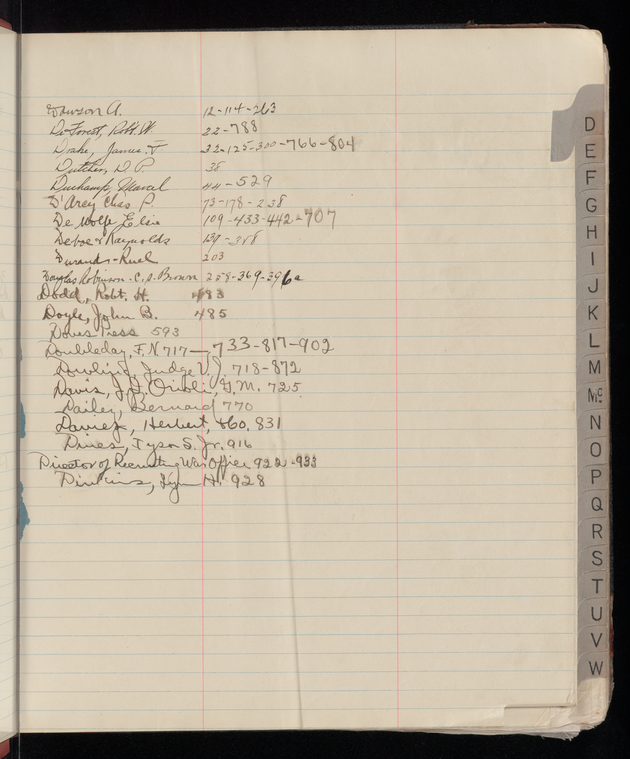 Dawson A. 12-114-263
DeForest, Robt W. 22-788
Drake, James F 32-125-300-766-804
Dutcher, D P. 38
Duchamp, Marcel 44-529
D'Arcy Chas P. 73-178-238
De Wolfe Elsie 109-433-442-707
Deboe & Raynolds 139-388
Durand-Ruel 203
Douglas Robinson-C.S. Brown 258-369-396a
Dodd, Robt. H. 483
Doyle, John B. 485
Doves Press 593
Doubleday, F.N 717-733-817-902
Dowling, Judge V.J. 718-872
Davis, J.I. Orioli, G.M. 725
Dailey, Bernard 770
Davies, Herbert, 860, 831
Dines, Tyson S. Jr. 916
Director of Recruiting War Office 922-933
Dinkins, Lynn H. 928
D
E
F
G
H
I
J
K
L
M
Mc
N
O
P
Q
R
S
T
U
V
W